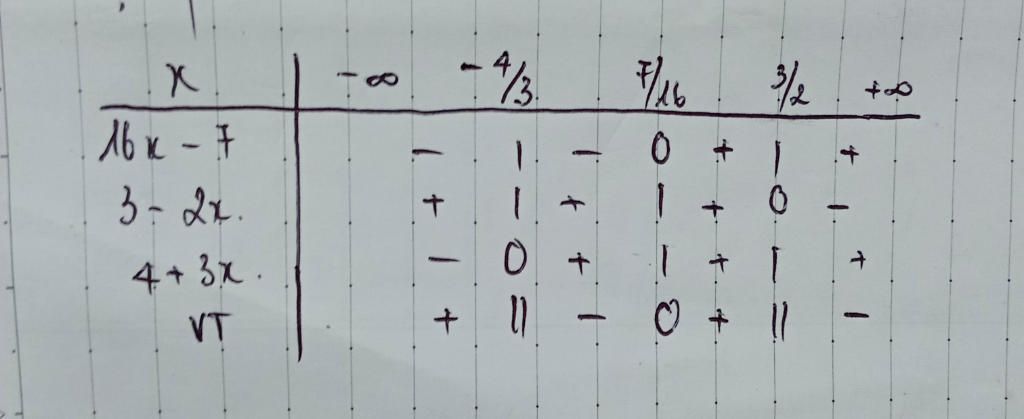 x -∞ -4/3 7/16 3/2 +∞
16x - 7 - | - 0 + | +
3 - 2x. + | + | + 0 -
4 + 3x. - 0 + | + | +
VT + || - 0 + || -